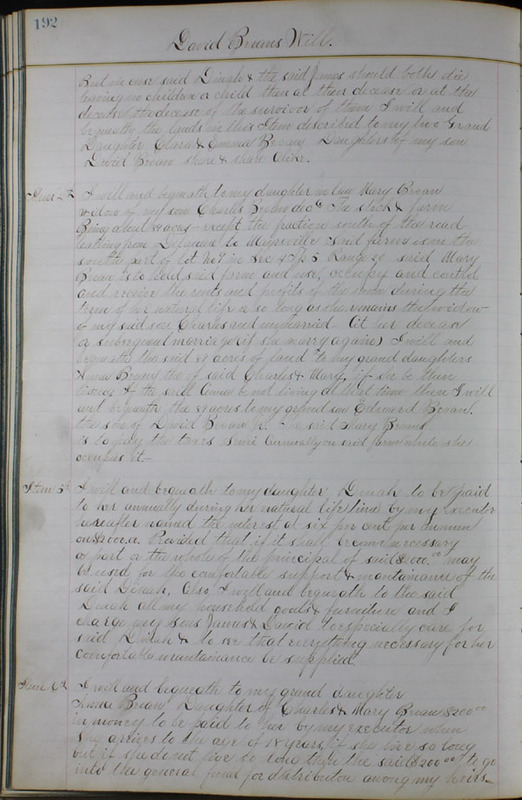 192
David Breans Will.
But in case said Dinah & the said James should both die
leaving no children or child then at their decease or at the
decease of the survivor of them I will and
bequeath the lands in this Item described to my two Grand
Daughters Clara & Emma Brean Daughters of my son
David Brean share & share alike.
Item 4th I will and bequeath to my daughter in law Mary Brean
widow of my son Charles Brean decd The stock & farm
Being about acres except the fraction south of the road
leading from to said farm is in the
south part of Lot No 7 in Sec 4 Tp 5 Range 20 said Mary
Brean is to hold said farm and use, occupy and control
and receive the rents and profits of the same during the
term of her natural life or so long as she remains the widow
of my said son Charles and unmarried (at her decease
or subsequent marriage if she marry again) I will and
bequeath the said acres of land to my grand daughter
Anna Brean, the of said Charles & Mary, if she be then
living If the said Anna be not living at that time then I will
and bequeath the acres to my grand son Edward Brean,
the son of David Brean The said Mary Brean
is to pay the taxes annually on said farm while she
occupies it—
Item 5th I will and bequeath to my daughter Dinah to be paid
to her annually during her natural life time by my executor
hereafter named the interest at six per cent per annum
on $1000.00 Provided that if it shall become necessary
a part or the whole of the principal of said $1000.00 may
be used for the comfortable support & maintainance of the
said Dinah, Also I will and bequeath to the said
Dinah all my household goods & furniture and I
charge my sons James & David to especially care for
said Dinah & to see that everything necessary for her
comfortable maintainance be supplied
Item 6th I will and bequeath to my grand daughter
Anna Brean Daughter of Charles & Mary Brean $200.00
in money to be paid to her by my executor when
she arrives to the age of 18 years, if she live so long
but if she do not live so long then the said $200.00 to go
into the general fund for distribution among my heirs—